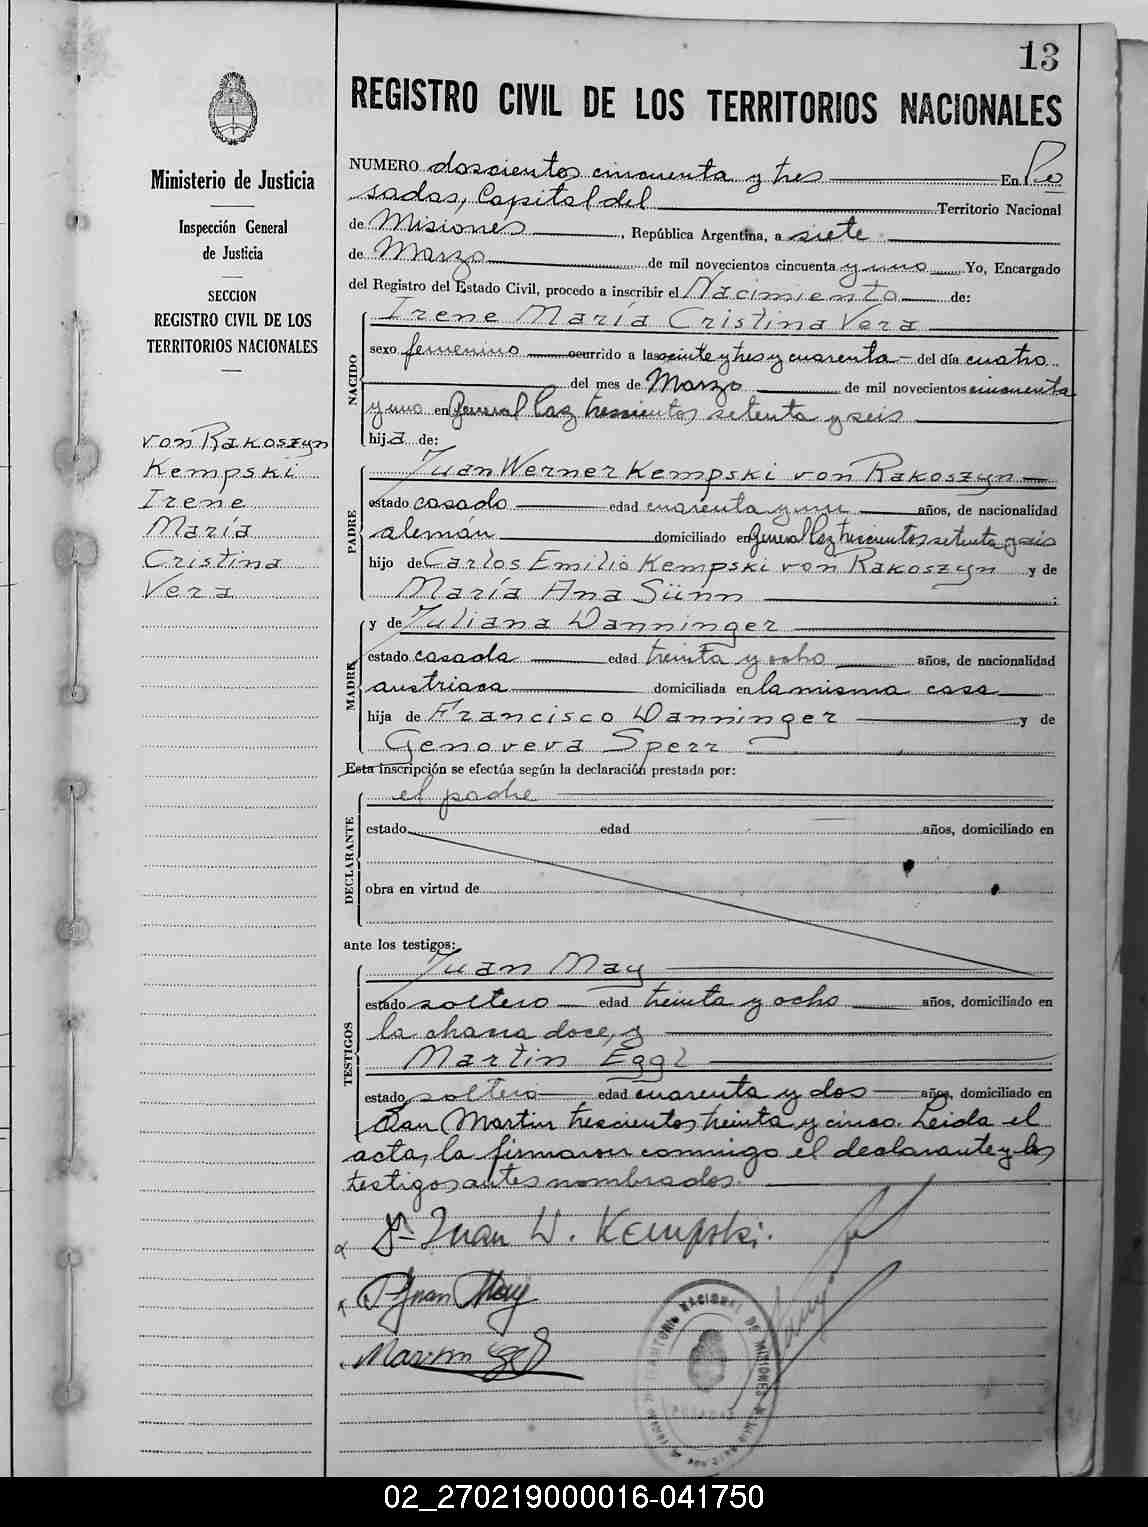 13
Ministerio de Justicia
Inspección General
de Justicia
SECCION
REGISTRO CIVIL DE LOS
TERRITORIOS NACIONALES
von Rakoszyn
Kempski
Irene
María
Cristina
Vera
REGISTRO CIVIL DE LOS TERRITORIOS NACIONALES
NUMERO doscientos cincuenta y tres En Po
sadas, Capital del Territorio Nacional
de Misiones, República Argentina, a siete
de Marzo de mil novecientos cincuenta y uno Yo, Encargado
del Registro del Estado Civil, procedo a inscribir el Nacimiento de:
NACIDO
Irene María Cristina Vera
sexo femenino ocurrido a las veinte y tres y cuarenta del día cuatro
del mes de Marzo de mil novecientos cincuenta
y uno en General Paz trescientos setenta y seis
hija de:
PADRE
Juan Werner Kempski von Rakoszyn
estado casado edad cuarenta y un años, de nacionalidad
alemán domiciliado en General Paz trescientos setenta y seis
hijo de Carlos Emilio Kempski von Rakoszyn y de
María Ana Sünn;
MADRE
y de Juliana Danninger
estado casada edad treinta y ocho años, de nacionalidad
austriaca domiciliada en la misma casa
hija de Francisco Danninger y de
Genoveva Sperr
Esta inscripción se efectúa según la declaración prestada por:
DECLARANTE
el padre
estado edad años, domiciliado en
obra en virtud de
ante los testigos:
TESTIGOS
Juan May
estado soltero edad treinta y ocho años, domiciliado en
la chacra doce, y
Martin Eggl
estado soltero edad cuarenta y dos años, domiciliado en
San Martin trescientos treinta y cinco. Leida el
acta, la firmaron conmigo el declarante y los
testigos antes nombrados.
Dr Juan W. Kempski.
Juan May
Martin
NACIONAL DE MISIONES
02_270219000016-041750